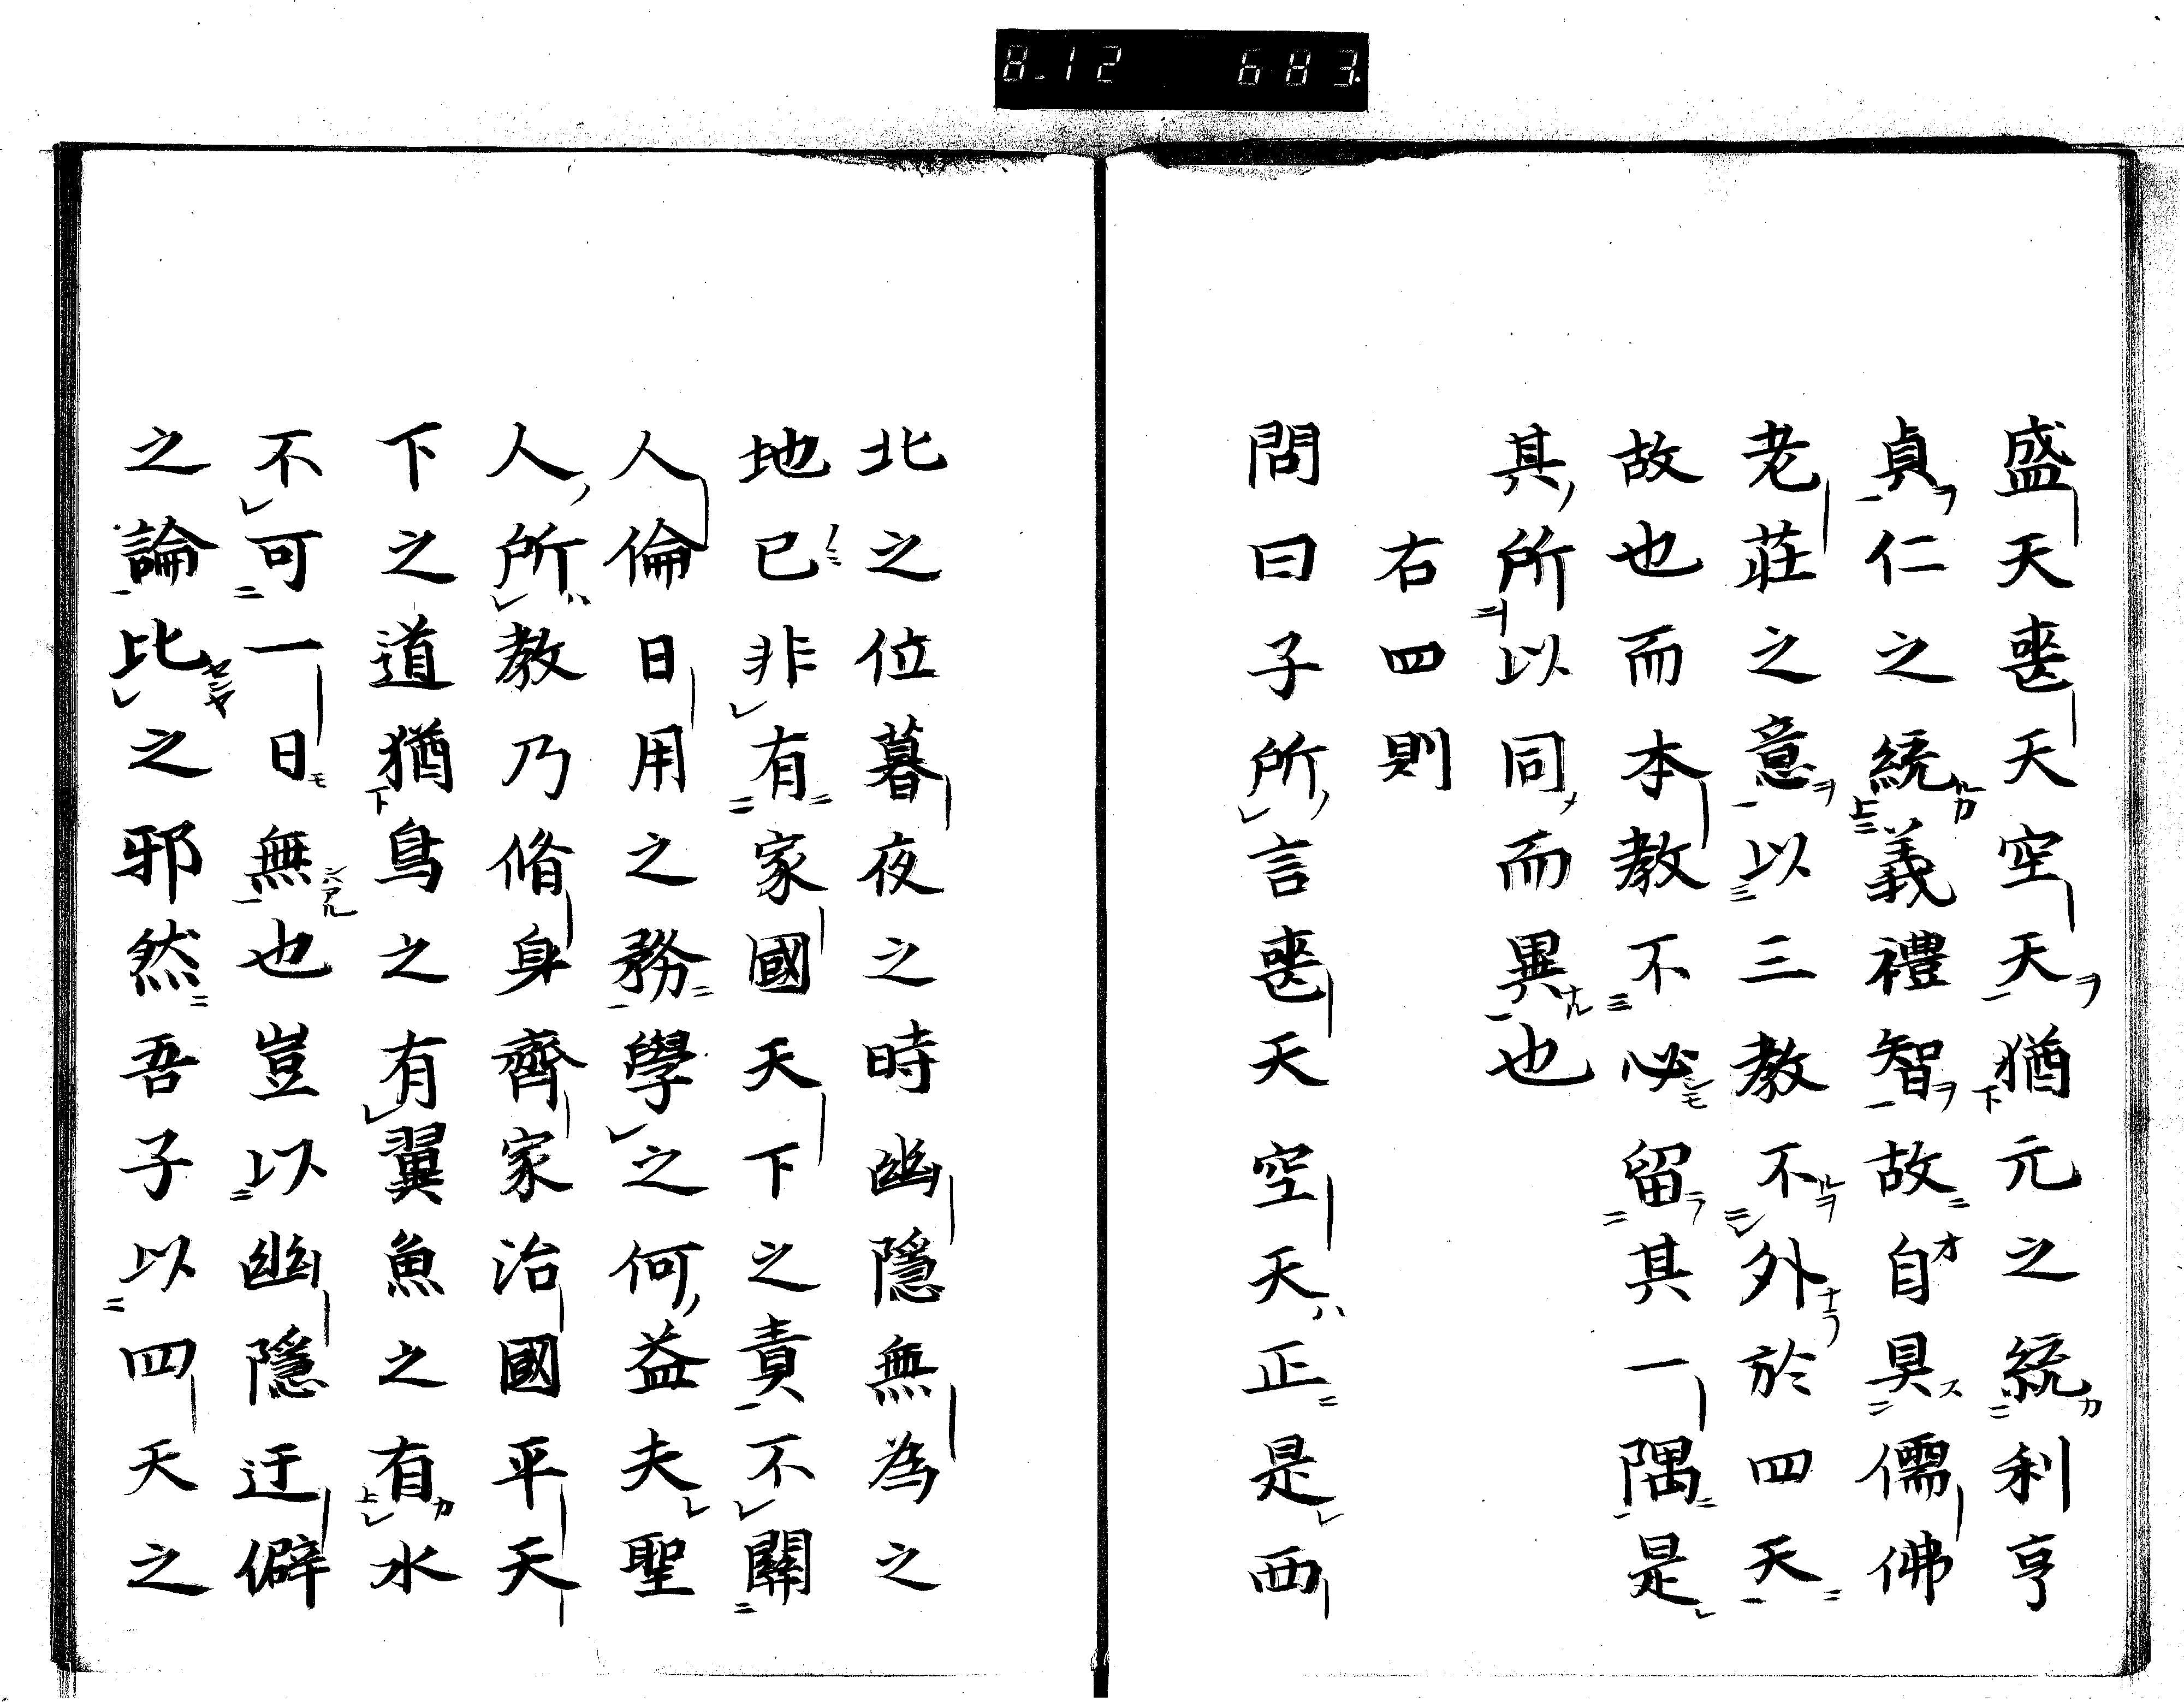 8-12 683.
盛天喪天空天猶元之統利亨
貞仁之統義禮智故自具儒佛
老莊之意以三教不外於四天
故也而本教不必留其一隅是
其所以同而異也
右四則
問曰子所言喪天空天正是西
北之位暮夜之時幽隱無為之
地已非有家國天下之責不關
人倫日用之務學之何益夫聖
人所教乃脩身齊家治國平天
下之道猶鳥之有翼魚之有水
不可一日無也豈以幽隱迂僻
之論比之邪然吾子以四天之